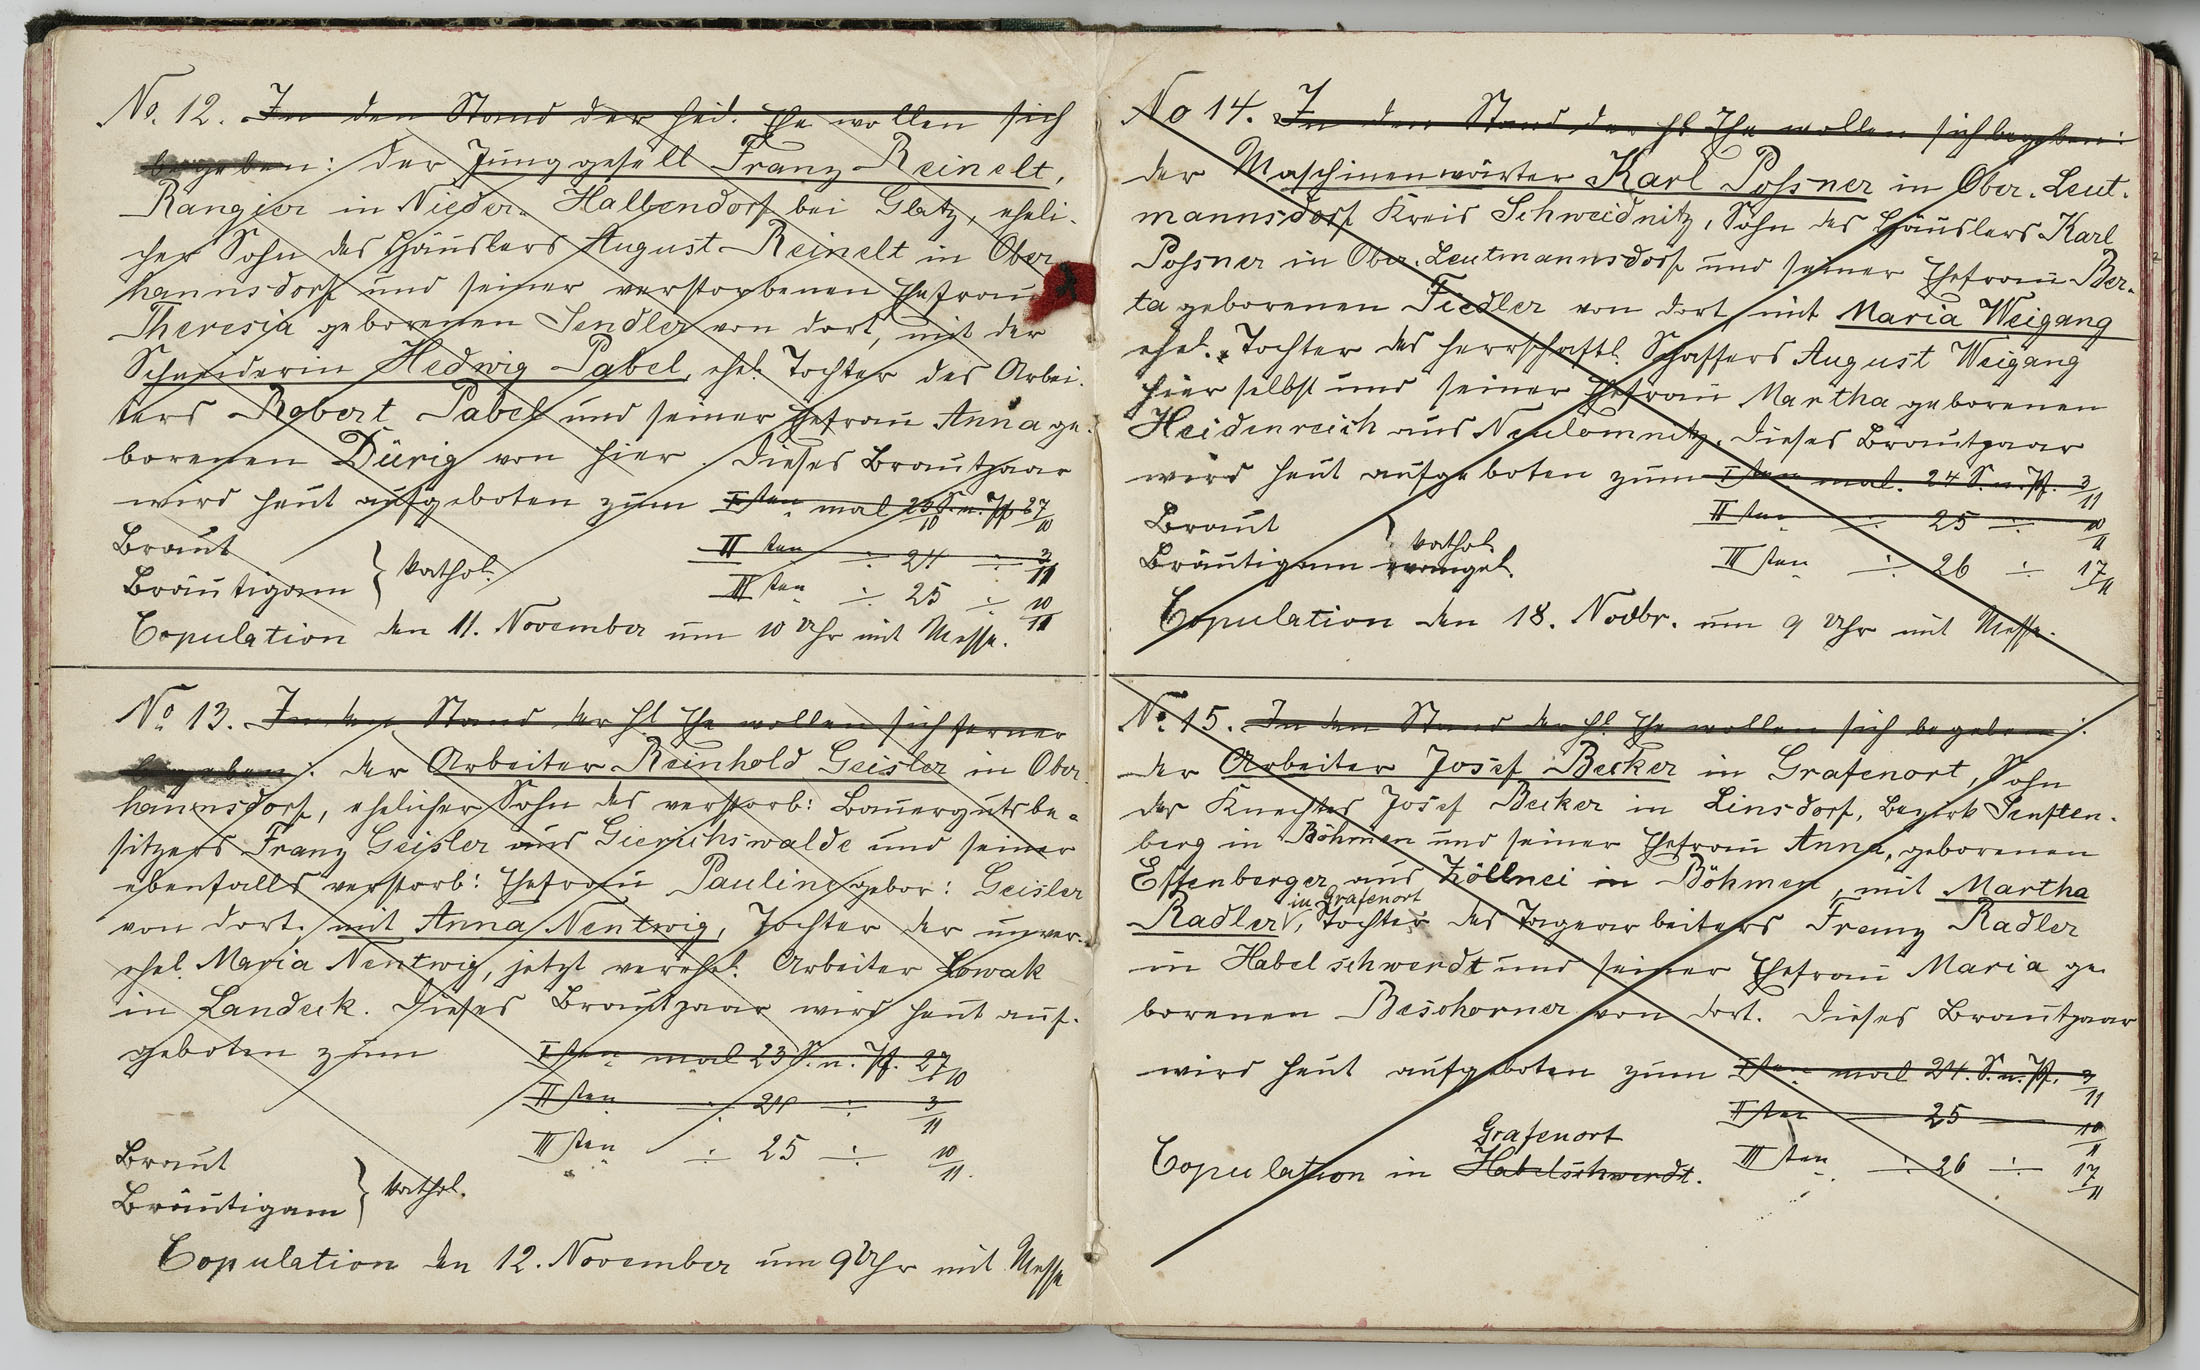 No. 12. In den Stand der heil. Ehe wollen sich
begeben: der Junggesell Franz Reinelt,
Rangier in Nieder-Halbendorf bei Glatz, eheli-
cher Sohn des Häuslers August Reinelt in Ober
hannsdorf und seiner verstorbenen Ehefrau
Theresia geborenen Sendler von dort, mit der
Schneiderin Hedwig Pabel, ehel. Tochter des Arbei-
ters Robert Pabel und seiner Ehefrau Anna ge-
borenen Dürig von hier. Dieses Brautpaar
wird heut aufgeboten zum Iten mal 23 S. n. Pf. 27/10
Braut
Bräutigam } kathol.
II ten ÷ 24 ÷ 3/11
III ten ÷ 25 ÷ 10/11
Copulation den 11. November um 10 Uhr mit Messe.
No 13. In den Stand der hl. Ehe wollen sich ferner
begeben: der Arbeiter Reinhold Geisler in Ober
hannsdorf, ehelicher Sohn des verstorb: Bauergutsbe-
sitzers Franz Geisler aus Gierichswalde und seiner
ebenfalls verstorb: Ehefrau Pauline gebor: Geisler
von dort. mit Anna Nentwig, Tochter der unver-
ehel. Maria Nentwig, jetzt verehel. Arbeiter Lowak
in Landeck. Dieses Brautpaar wird heut auf-
geboten zum Iten mal 23 S. n. Pf. 27/10
II ten ÷ 24 ÷ 3/11
III ten ÷ 25 ÷ 10/11.
Braut
Bräutigam } kathol.
Copulation den 12. November um 9 Uhr mit Messe
No 14. In den Stand der hl Ehe wollen sich begeben:
der Maschinenwärter Karl Poßner in Ober-Leut-
mannsdorf Kreis Schweidnitz, Sohn des Häuslers Karl
Poßner in Ober-Leutmannsdorf und seiner Ehefrau Ber-
ta geborenen Fiedler von dort mit Maria Weigang
ehel. Tochter des herrschaftl. Schaffers August Weigang
hierselbst und seiner Ehefrau Martha geborenen
Heidenreich aus Neulomnitz. Dieses Brautpaar
wird heut aufgeboten zum Iten mal. 24 S. n. Pf. 3/11
II ten ÷ 25 ÷ 10/11
Braut } kathol.
Bräutigam evangel.
III ten ÷ 26 ÷ 17/11
Copulation den 18. Novbr. um 9 Uhr mit Messe.
No 15. In den Stand der hl. Ehe wollen sich begeben:
der Arbeiter Josef Becker in Grafenort, Sohn
des Knechtes Josef Becker in Linsdorf, Bezirk Senften-
berg in Böhmen und seiner Ehefrau Anna, geborenen
Effenberger aus Zöllnei in Böhmen, mit Martha
in Grafenort
Radler, Tochter des Tagearbeiters Franz Radler
in Habelschwerdt und seiner Ehefrau Maria ge-
borenen Beschorner von dort. Dieses Brautpaar
wird heut aufgeboten zum Iten mal 24. S. n. Pf. 3/11
II ten 25 10/11
Grafenort
Copulation in Habelschwerdt.
III ten ÷ 26 ÷ 17/11